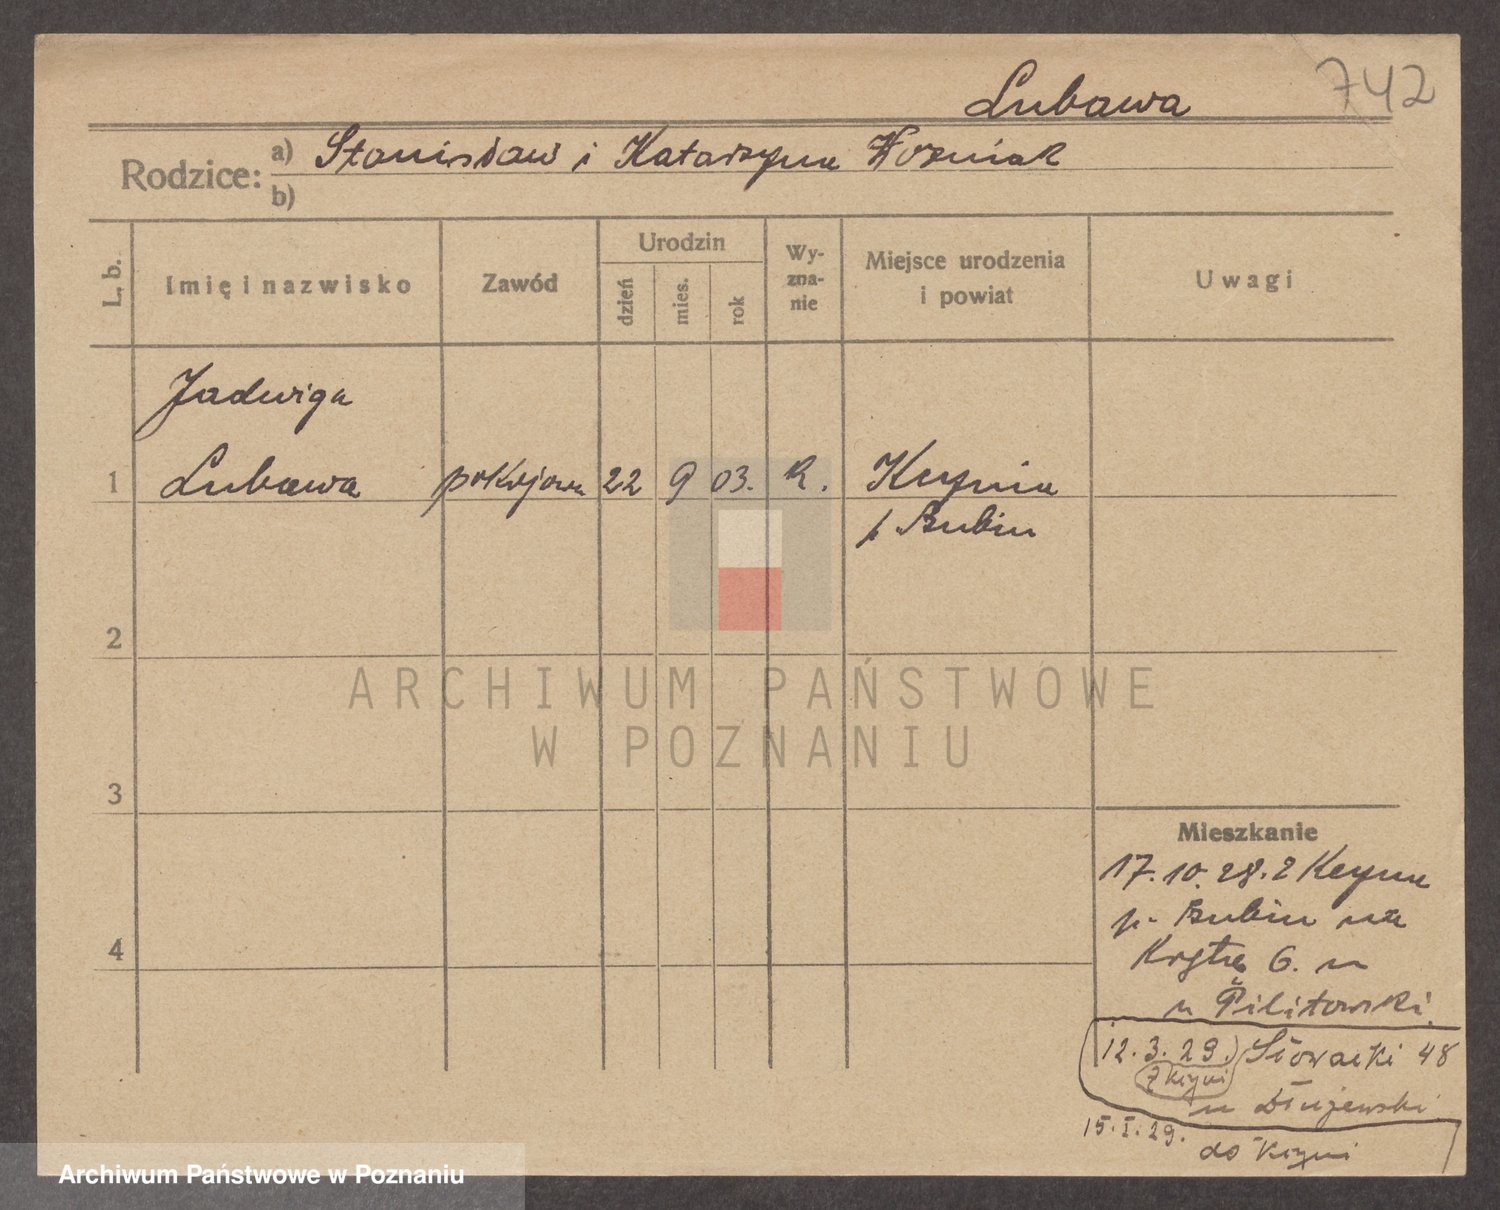 Lubawa
742
Rodzice:
a) Stanisław i Katarzyna Woźniak
b)
L. b.
Imię i nazwisko
Zawód
Urodzin
dzień
mies.
rok
Wy-
zna-
nie
Miejsce urodzenia
i powiat
Uwagi
Jadwiga
1 Lubawa pokojowa 22 9 03. R. Kcynia
p Szubin
2
3
4
ARCHIWUM PAŃSTWOWE
W POZNANIU
Mieszkanie
17.10.28. z Kcyni
p. Szubin na
6.
u
12.3.29. Słowacki 48
z Kcyni
u Dłużewski
15.I.29.
do Kcyni
Archiwum Państwowe w Poznaniu